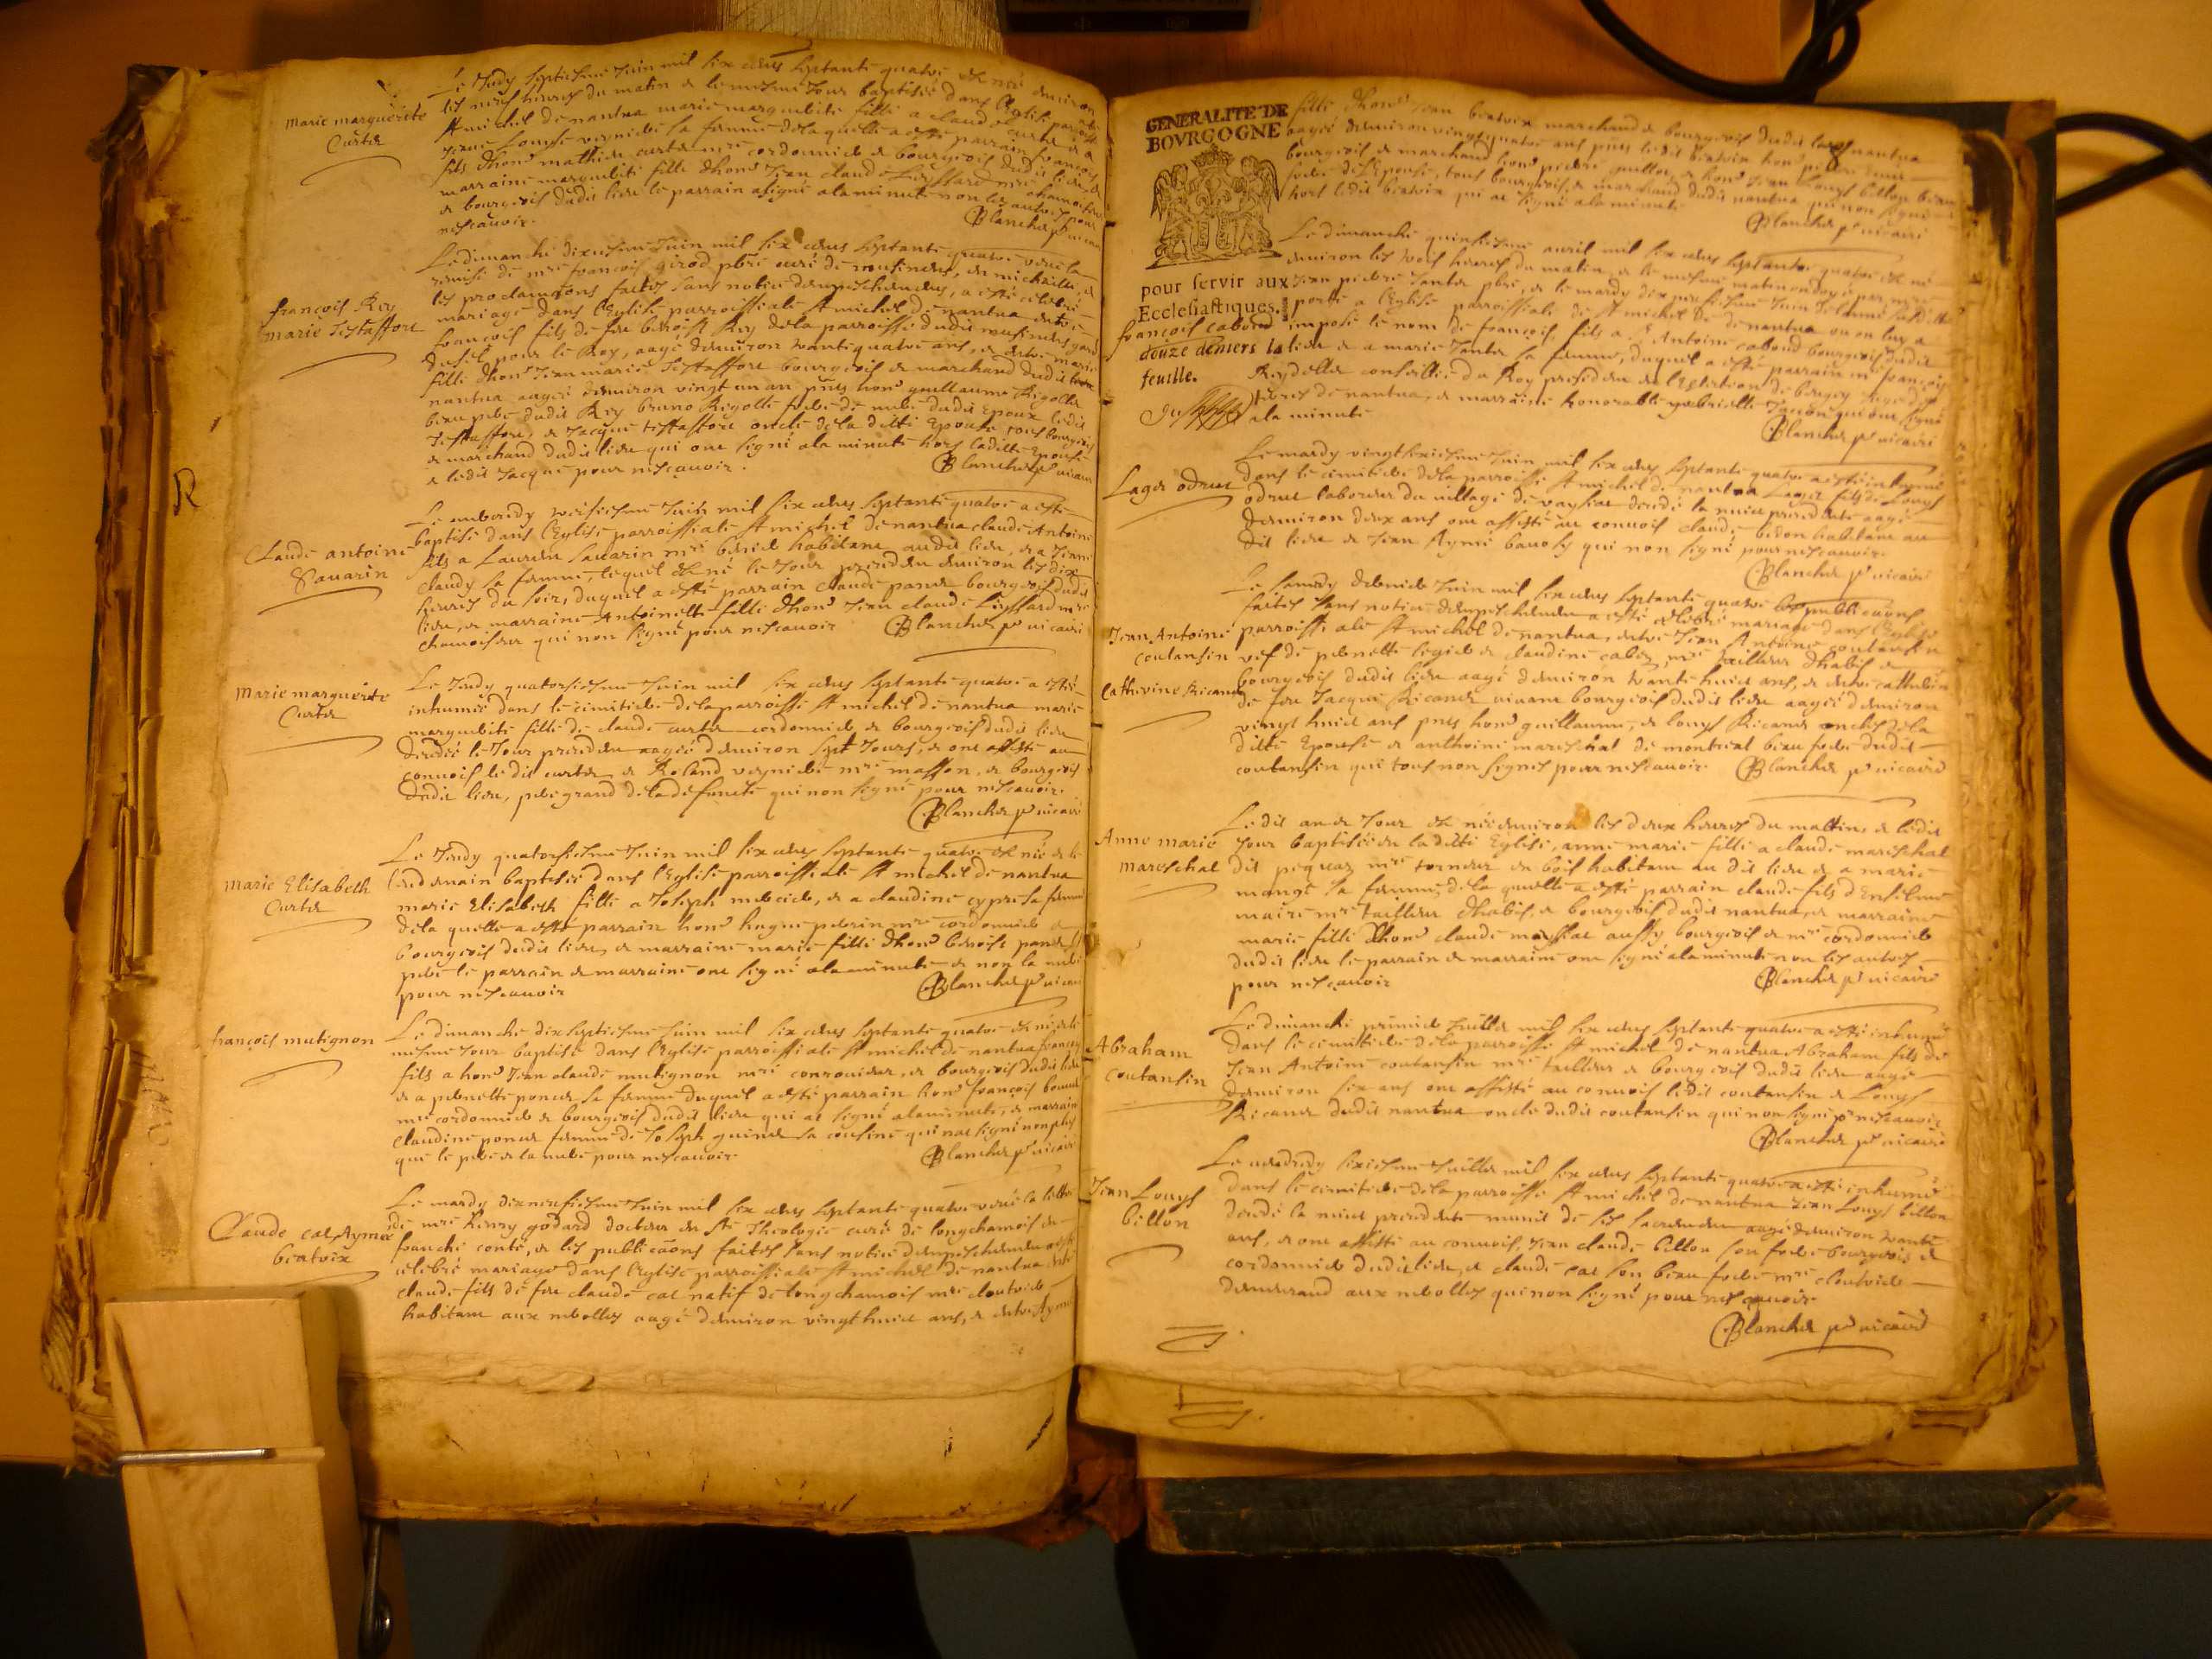 marie marguerite
Curtet
Le Jeudy septiesme Juin mil six cents septante quatre est née environ
les neuf heures du matin et le mesme jour baptisée dans l'Eglise
St michel de nantua marie marguerite fille a claude curtet et a
fils dhon mathieu curtet mre cordonnier et bourgeois dudit lieu et
marraine marguerite fille dhon Jean claude mre chamoiseur
et bourgeois dudit lieu le parrain a signé a la minute non les autres pour
nescauoir.
Blanchet pr uicaire
françois Rey
marie Testaffort
Le dimanche dixiesme Juin mil six cents septante quatre
remise de mre françois girod pbre curé de musinens, en michaille, et
les proclamaons faites sans notice dempeschement, a esté celebré
mariage dans l'Eglise parroissiale St michel de nantua entre
françois fils de feu benoist Rey de la parroisse dudit musinens garde
du sel pour le Roy, aagé denuiron trante quatre ans, et entre marie
fille dhon Jean marie Testaffort bourgeois et marchand dudit
nantua aagée denuiron vingt un an pnts hon guillaume Rigollet
beau pere dudit Rey bruno Rigollet frere de mere dudit Epoux ledit
Testaffort, et Jacque testaffort oncle de la ditte Epouse tous bourgeois
et marchand dudit lieu qui ont signé a la minute hors laditte Epouse
et ledit Jacque pour nescauoir.
Blanchet pr uicaire
Claude antoine
Sauarin
Le mercredy treisiesme Juin mil six cents septante quatre a esté
baptisé dans l'Eglise parroissiale St michel de nantua claude Antoine
fils a Laurent sauarin mre habitant audit lieu, et a Jeanne
claudy sa femme, lequel est né le jour precedent enuiron les dix
heures du soir, duquel a esté parrain claude panet bourgeois dudit
lieu, et marraine Antoinette fille dhon Jean claude mre
chamoiseur qui non signé pour nescauoir
Blanchet pr uicaire
Marie marguerite
Curtet
Le Jeudy quatorsiesme Juin mil six cents septante quatre a esté
inhumée dans le cimitiere de la parroisse St michel de nantua marie
marguerite fille de claude curtet cordonnier et bourgeois dudit lieu
decedée le jour precedent aagée denuiron sept jours, et ont assisté au
conuois ledit curtet et Roland mre masson, et bourgeois
dudit lieu, pere grand de la defuncte qui non signé pour nescauoir.
Blanchet pr uicaire
Marie Elisabeth
Curtet
Le Jeudy quatorsiesme Juin mil six cents septante quatre est née et le
lendemain baptisée dans l'Eglise parroissiale St michel de nantua
marie Elisabeth fille a Joseph mercier, et a claudine cypre sa femme
de la quelle a esté parrain hon hugue perrin mre cordonnier et
bourgeois dudit lieu, et marraine marie fille dhon benoist panet
pere le parrain et marraine ont signé a la minute et non la mere
pour nescauoir
Blanchet pr uicaire
françois mutignon
Le dimanche dixseptiesme Juin mil six cents septante quatre est né et le
mesme jour baptisé dans l'Eglise parroissiale St michel de nantua françois
fils a hon Jean claude mutignon mre conroieur, et bourgeois dudit lieu
et a pernette poncet sa femme duquel a esté parrain hon françois
mre cordonnier et bourgeois dudit lieu qui at signé a la minute, et marraine
claudine poncet femme de Joseph guinet sa cousine qui nat signé non plus
que le pere et la mere pour nescauoir
Blanchet pr uicaire
Claude cat Aymée
bertrix
Le mardy dixneufiesme Juin mil six cents septante quatre
de mre henry godard docteur en Ste Theologie curé de longchamois en
franche conté, et les publicaons faites sans notice dempeschement a esté
celebré mariage dans l'Eglise parroissiale St michel de nantua entre
claude fils de feu claude cat natif de longchamois mre cloutrier
habitant aux nerolles aagé denuiron vingt huict ans, et entre Aymée
GENERALITE DE
BOVRGOGNE
pour servir aux
Ecclesiastiques.
douze deniers la
feuille.
fille dhon Jean bertrix marchand et bourgeois dudit nantua
aagée denuiron vingt quatre ans pnts ledit bertrix hon pierre
bourgeois et marchand hon pierre guillot, et hon Jean Louys billon beau
frere de l'Epouse, tous bourgeois et marchand dudit nantua qui non signé
hors ledit bertrix qui at signé a la minute
Blanchet pr uicaire
françois cabond
Le dimanche quinsiesme auril mil six cents septante quatre est né
enuiron les trois heures du matin, et le mesme matin ondoyé par mre
Jean pierre Jantet pbre, et le mardy dixneufiesme Juin de lanné susditte
porté a l'Eglise parroissiale de St michel de nantua ou on luy a
imposé le nom de françois, fils a Sr Antoine cabond bourgeois dudit
lieu et a marie Jantet sa femme, duquel a esté parrain mre françois
Reydellet conseillier du Roy president en l'Election de bugey
de nantua, et marraine honorable gabrielle qui ont signé
a la minute
Blanchet pr uicaire
Laget odruet
Le mardy vingtsixiesme Juin mil six cents septante quatre a esté inhumé
dans le cimitiere de la parroisse St michel de nantua Laget fils de Louys
odruet laboureur du uillage de decedé la nuict precedente aagé
denuiron deux ans ont assisté au conuois claude bedon habitant au
dit lieu et Jean Aymé qui non signé pour nescauoir.
Blanchet pr uicaire
Jean Antoine
coutansin
Catherine Ricand
Le samedy dernier Juin mil six cents septante quatre les publicaons
faites sans notice dempeschement a esté celebré mariage dans l'Eglise
parroissiale St michel de nantua, entre Jean Antoine coutansin
vef de pernette et claudine mre tailleur dhabis et
bourgeois dudit lieu aagé denuiron trante huict ans, et entre catherine
de feu Jacque Ricand uiuant bourgeois dudit lieu aagée denuiron
vingt huict ans pnts hon guillaume, et Louys Ricand oncles de la
ditte Epouse et anthoine mareschal de montreal beau frere dudit
coutansin qui tous non signés pour nescauoir.
Blanchet pr uicaire
Anne marie
mareschal
Ledit an et jour est née enuiron les deux heures du mattin, et ledit
jour baptisée en la ditte Eglise, anne marie fille a claude mareschal
dit pequaz mre torneur en bois habitant au dit lieu et a marie
monge sa femme, de la quelle a esté parrain claude fils
maire mre tailleur dhabis, et bourgeois dudit nantua, et marraine
marie fille dhon claude aussy bourgeois et mre cordonnier
dudit lieu le parrain et marraine ont signé a la minute non les autres
pour nescauoir
Blanchet pr uicaire
Abraham
coutansin
Le dimanche premier Juillet mil six cents septante quatre a esté inhumé
dans le cimitiere de la parroisse St michel de nantua Abraham fils de
Jean Antoine coutansin mre tailleur et bourgeois dudit lieu aagé
denuiron six ans ont assisté au conuois ledit coutansin et Louys
Ricand dudit nantua oncle dudit coutansin qui non signé pr nescauoir
Blanchet pr uicaire
Jean Louys
billon
Le uendredy sixiesme Juillet mil six cents septante quatre a esté inhumé
dans le cimitiere de la parroisse St michel de nantua Jean Louys billon
decedé la nuict precedente munit de ses sacrements aagé denuiron trante
ans, et ont assisté au conuois, Jean claude billon son frere bourgeois et
cordonnier dudit lieu, et claude cat son beau frere mre cloutrier
demeurand aux nerolles qui non signé pour nescauoir.
Blanchet pr uicaire